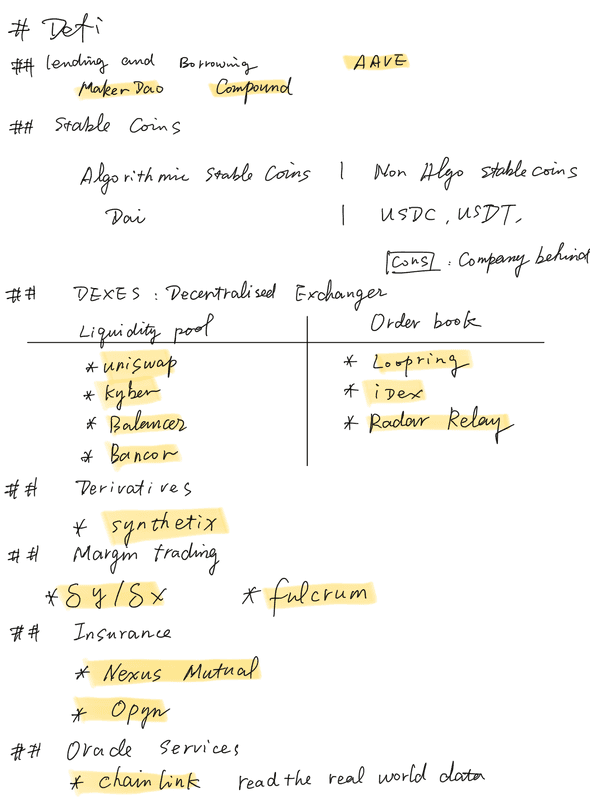 # Defi
## lending and Borrowing AAVE
MakerDao Compound
## Stable Coins
Algorithmic Stable Coins | Non Algo stablecoins
Dai | USDC, USDT,
Cons : Company behind
## DEXES : Decentralised Exchanger
Liquidity pool Order book
* uniswap * Loopring
* Kyber * iDex
* Balancer * Radar Relay
* Bancor
## Derivatives
* synthetix
## Margin trading
* δy/δx * fulcrum
## Insurance
* Nexus Mutual
* Opyn
## Oracle Services
* chainlink read the real world data